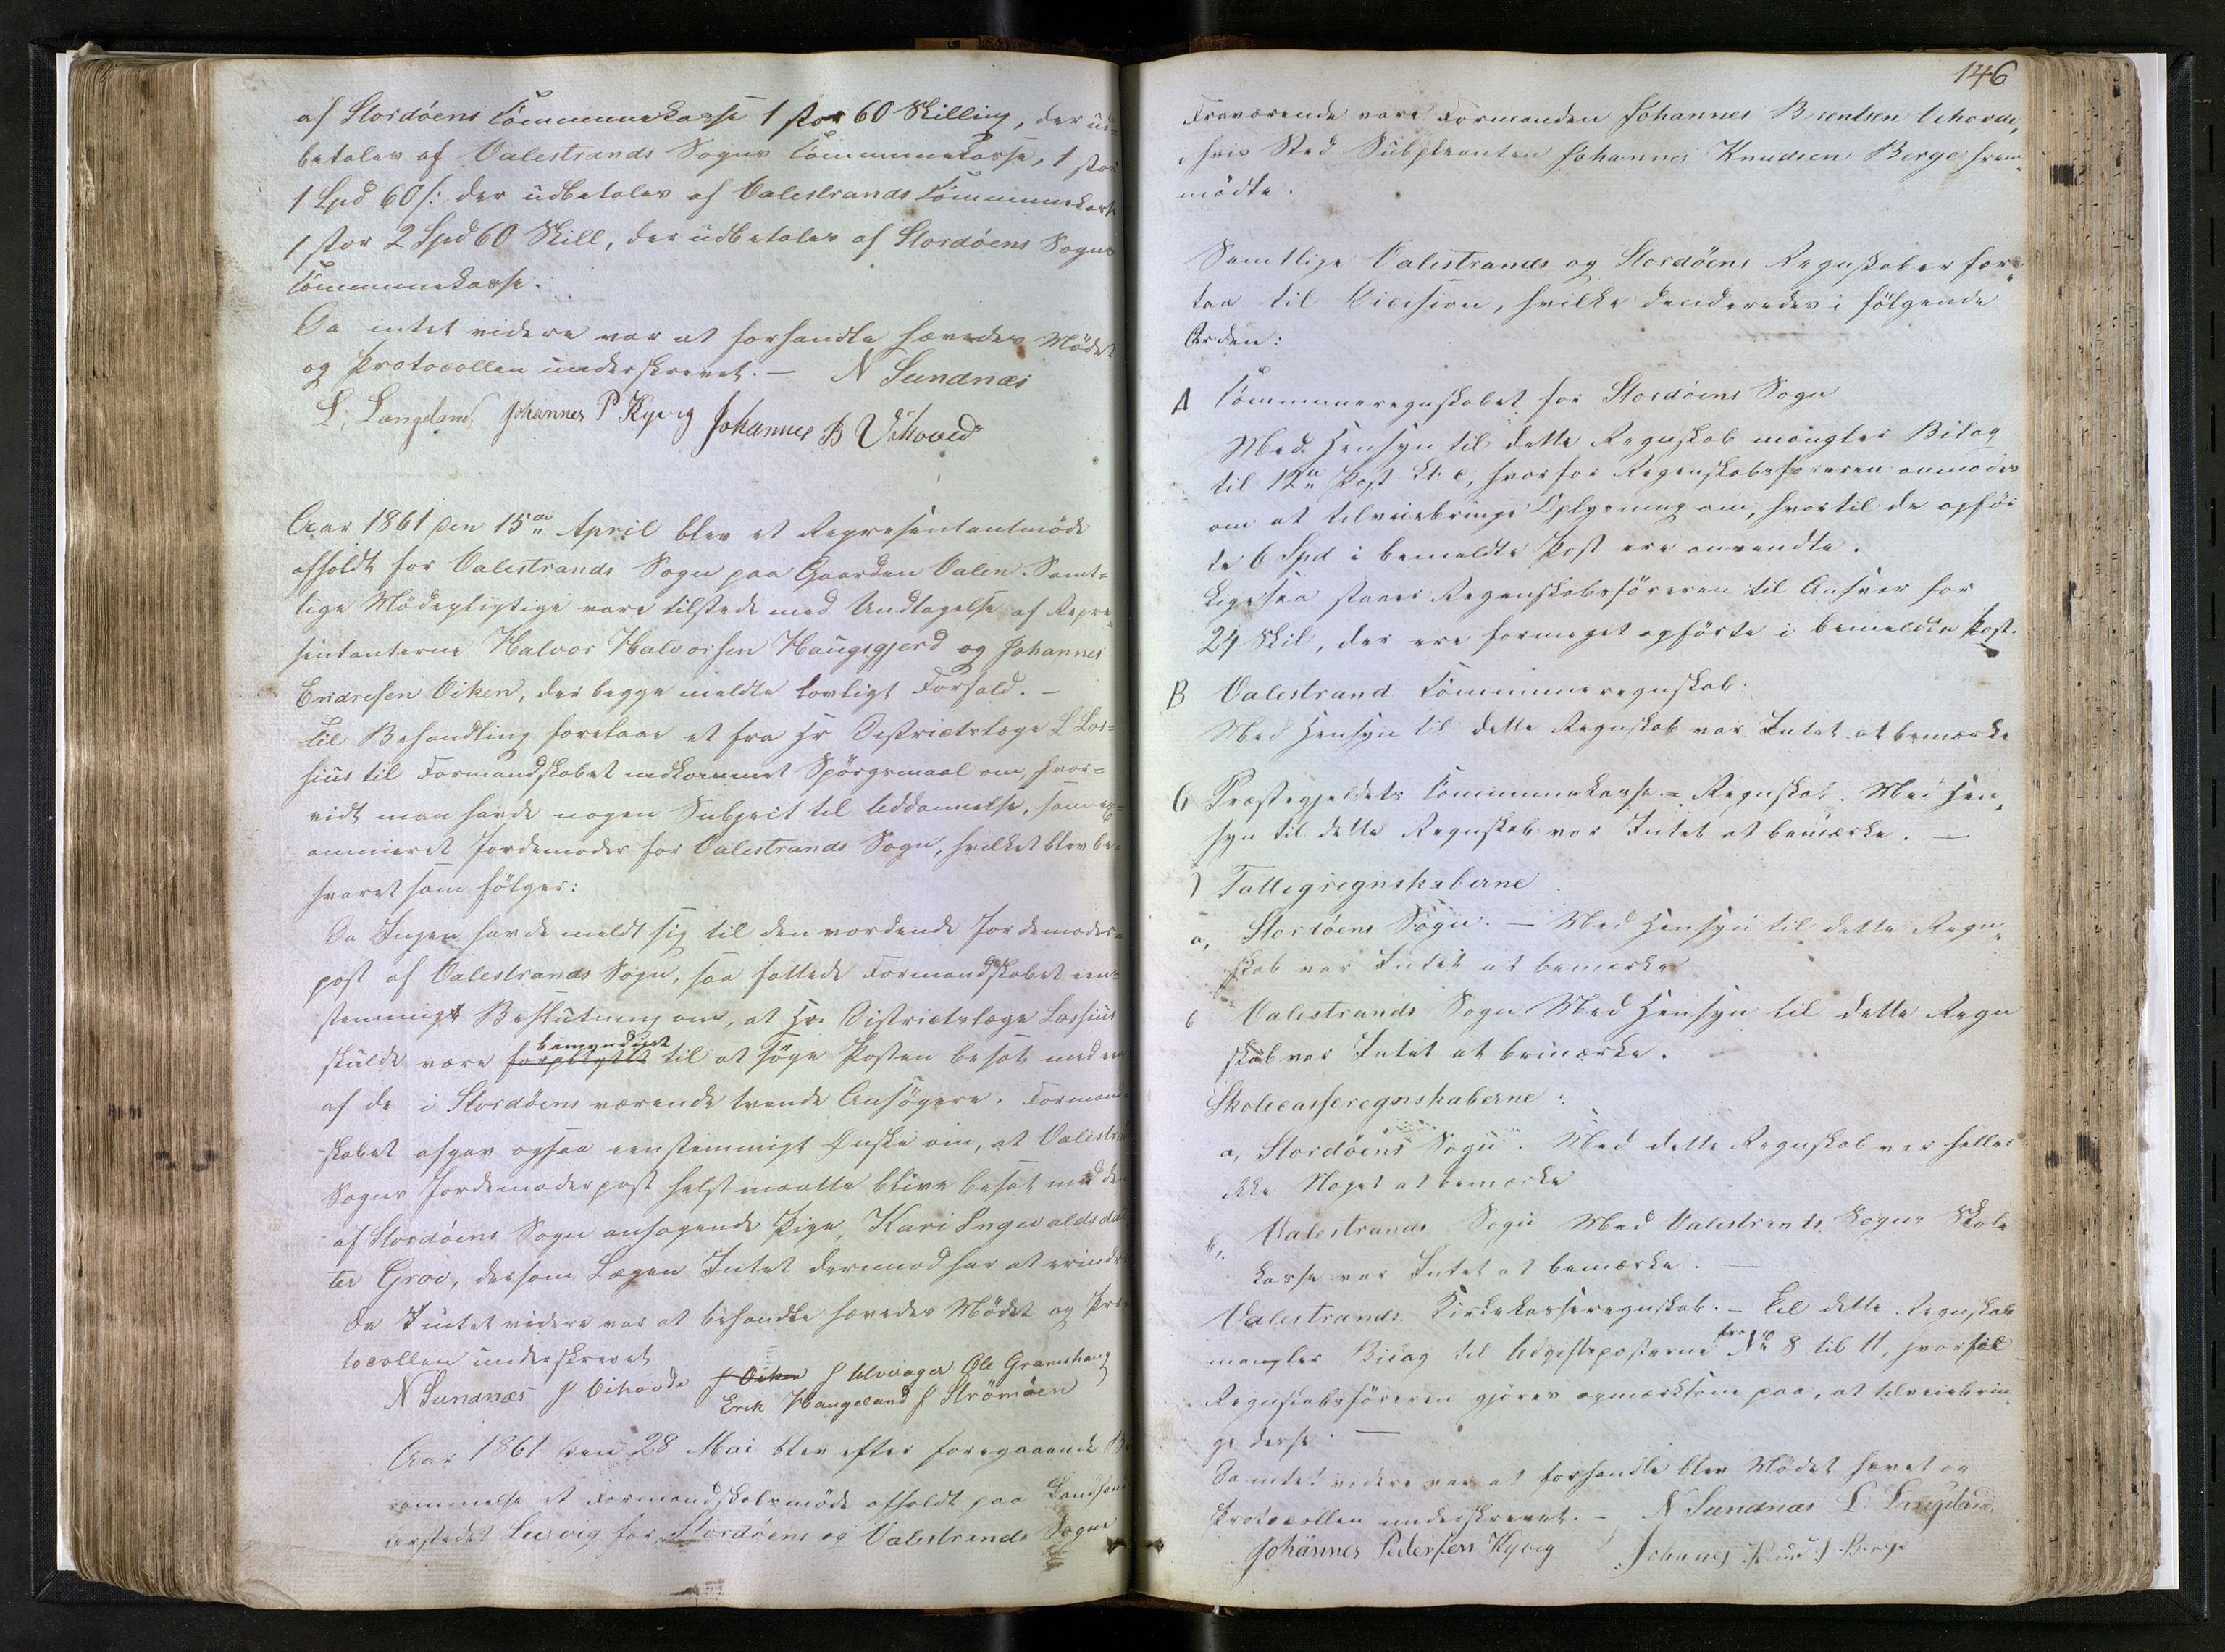 af Stordöens Communekasse 1 stor 60 Skilling, der ud=
betales af Valestrands Sogns Communekasse, 1 stor
1 Spd 60 s: der udbetales af Valestrands Communekasse
1 stor 2 Spd 60 Skill, der udbetales af Stordöens Sogns
Communekasse.
Da intet videre var at forhandle hævedes Mödet
og Protocollen underskrevet. — N Sundnæs
L. Langeland Johannes P Kyvig Johannes B Vihovd
Aar 1861 den 15de April blev et Representantmöde
afholdt for Valestrands Sogn paa Gaarden Valen. Samt=
lige Mödepligtige vare tilstede med Undtagelse af Repre„
sentanterne Halvor Halvorsen Haugsgjerd og Johannes
Endresen Viken, der begge meldte lovligt Forfald. —
Til Behandling foretaas et fra Hr Districtslæge L Los=
sius til Formandskabet indkommet Spörgsmaal om, hvor=
vidt man havde nogen Subject til Uddannelse, som ex=
amineret Jordemoder for Valestrands Sogn, hvilket blev be=
svaret som fölger:
Da Ingen havde meldt sig til den vordende Jordemoder=
post af Valestrands Sogn, saa fattede Formandskabet een=
stemmigt Beslutning om, at Hr. Districtslæge Lossius
bemyndiget
skulde være forpligtet til at söge Posten besat med en
af de i Stordöens værende tvende Ansögere. Formand=
skabet afgav ogsaa eenstemmigt Önske om, at Valestrands
Sogns Jordemoderpost helst maatte blive besat med den
af Stordöens Sogn ansögende Pige, Kari Ingevaldsdat
ter Grov, dersom Lægen Intet derimod har at erindre
Da Intet videre var at behandle hævedes Mödet og Pro=
tocollen underskrevet
N Sundnæs J Vihovde J Viken J Ulveager Ole Gramshaug
Erik Haugeland J Strömöen
Aar 1861 den 28 Mai blev efter foregaaende Be
rammelse et Formandskabsmöde afholdt paa Landhand
lerstedet Lervig for Stordöens og Valestrands Sogne
146
Fraværende vare Formanden Johannes Brentsen Vehovde,
i hvis Sted Suppleanten Johannes Knudsen Berge frem„
mödte.
Samtlige Valestrands og Stordöens Regnskaber fore„
taa til Decision, hvilke decideredes i fölgende
Orden:
A Communeregnskabet for Stordöens Sogn
Med Hensyn til dette Regnskab mangler Bilag
til 12te Post Lt. c, hvorfor Regnskabsföreren anmodes
om at tilveiebringe Oplysning om, hvortil de opför
te 6 Spd i bemeldte Post ere anvendte.
Ligesaa staaer Regnskabsföreren til Ansvar for
24 Skil, der ere formeget opförte i bemeldte Post.
B Valestrand Communeregnskab.
Med Hensyn til dette Regnskab var Intet at bemærke
C Præstegjeldets Communekasse = Regnskab. Med Hen„
syn til dette Regnskab var Intet at bemærke. —
Fattigregnskaberne
a, Stordöens Sogn. — Med Hensyn til dette Regn„
skab var Intet at bemærke
b Valestrands Sogn Med Hensyn til dette Regn
skab var Intet at bemærke.
Skolecasseregnskaberne:
a, Stordöens Sogn. Med dette Regnskab var heller
ikke Noget at bemærke
b, Valestrands Sogn Med Valestrands Sogns Skole
kasse var Intet at bemærke. —
Valestrands Kirkekasseregnskab. — Til dette Regnskab
mangler Bilag til Udgiftsposterne fra No 8 til 11, hvortil
Regnskabsföreren gjöres opmærksom paa, at tilveiebrin„
ge disse. —
Da intet videre var at forhandle blev Mödet hævet og
Protocollen underskrevet. — N Sundnæs L. Langeland
Johannes Pedersen Kyvig Johannes Knud S Berge